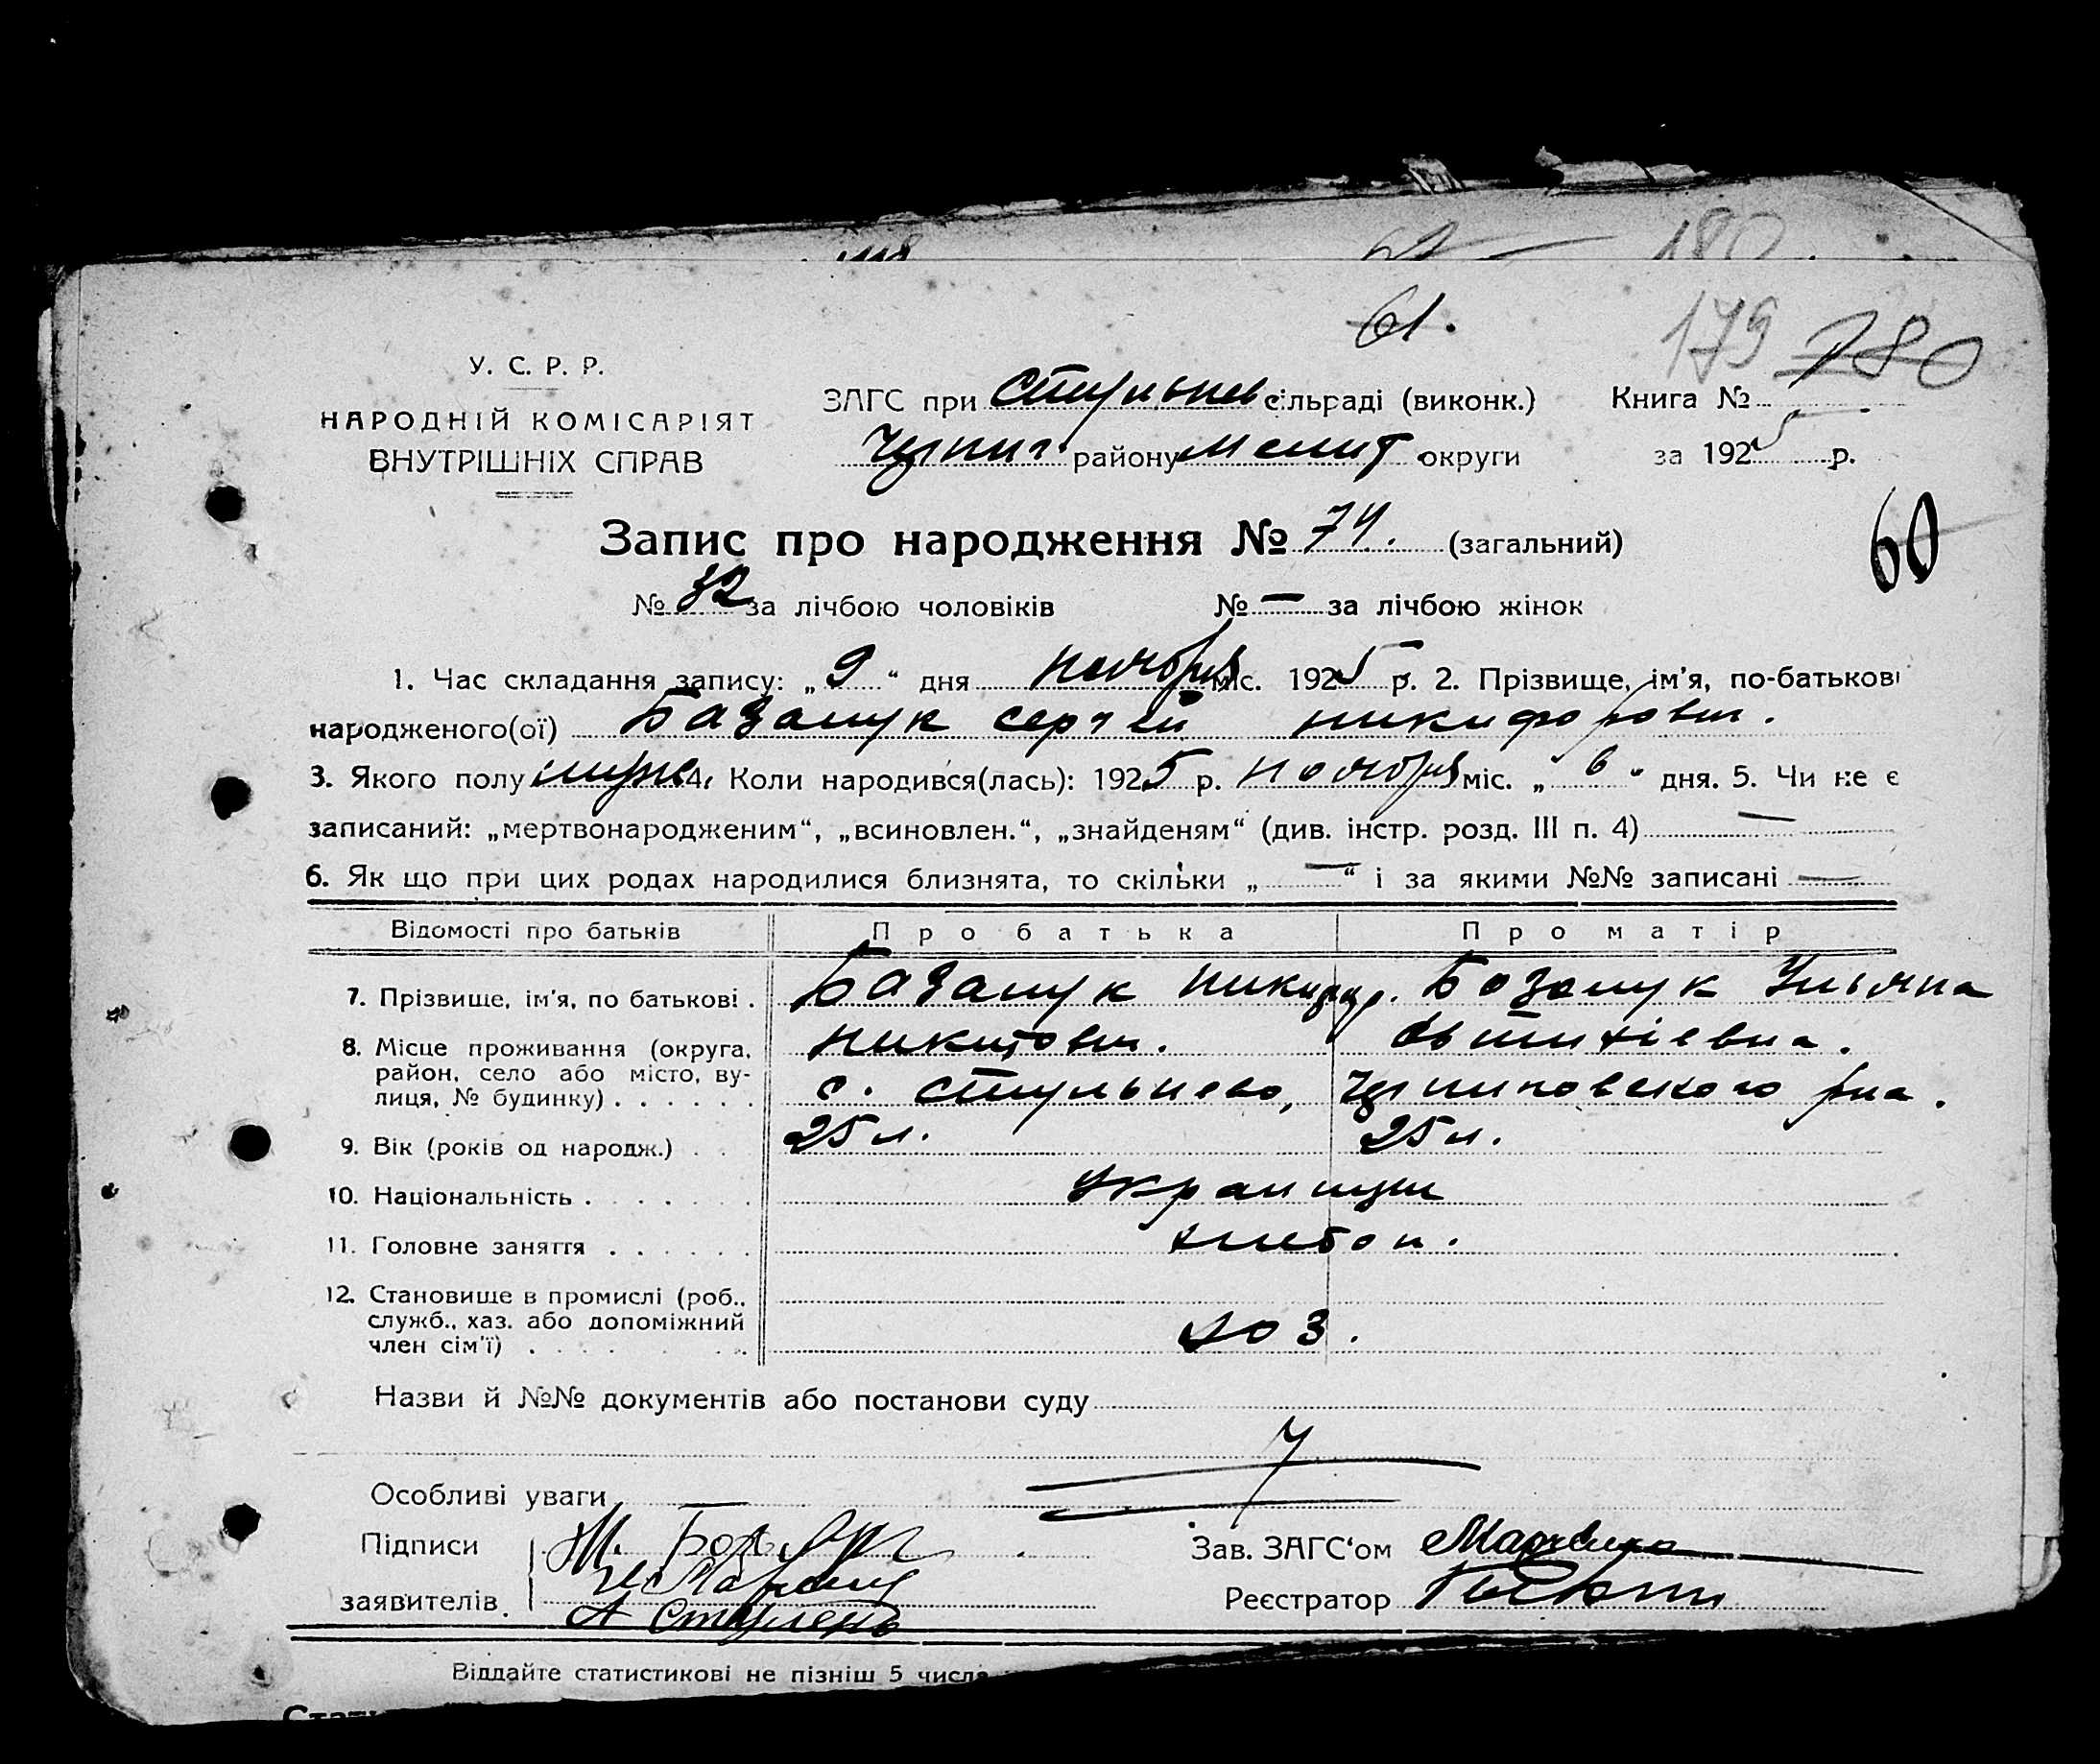 180
61.
179 180
У. С. Р. Р.
НАРОДНІЙ КОМІСАРІЯТ
ВНУТРІШНІХ СПРАВ
ЗАГС при Стульнев сільраді (виконк.)
Книга №
району Мелит округи
за 1925 р.
Запис про народження № 74. (загальний)
60
№ 32 за лічбою чоловіків № — за лічбою жінок
1. Час складання запису: „ 9 “ дня ноября міс. 1925 р. 2. Прізвище, ім'я, по-батькові
народженого(ої) Базалук Сергей Никифоров.
3. Якого полу муж 4. Коли народився(лась): 1925 р. ноября міс. „ 6 “ дня. 5. Чи не є
записаний: „мертвонародженим“, „всиновлен.“, „знайденям“ (див. інстр. розд. III п. 4) —
6. Як що при цих родах народилися близнята, то скільки „ — “ і за якими №№ записані —
Відомості про батьків Про батька Про матір
7. Прізвище, ім'я, по батькові . Базалук Никифор. Базалук Ульяна
Никитов.
8. Місце проживання (округа, район, село або місто, вулиця, № будинку) . . . . . . с. Стульнево, р-на.
9. Вік (років од народж.) . . . 25 л. 25 л.
10. Національність . . . . . . Украинцы
11. Головне заняття . . . . . . хлебоп.
12. Становище в промислі (роб., служб., хаз. або допоміжний член сім'ї) . . . . . . хоз.
Назви й №№ документів або постанови суду
Особливі уваги —
Підписи
заявителів.
Зав. ЗАГС'ом
Реєстратор
Віддайте статистикові не пізніш 5 числа